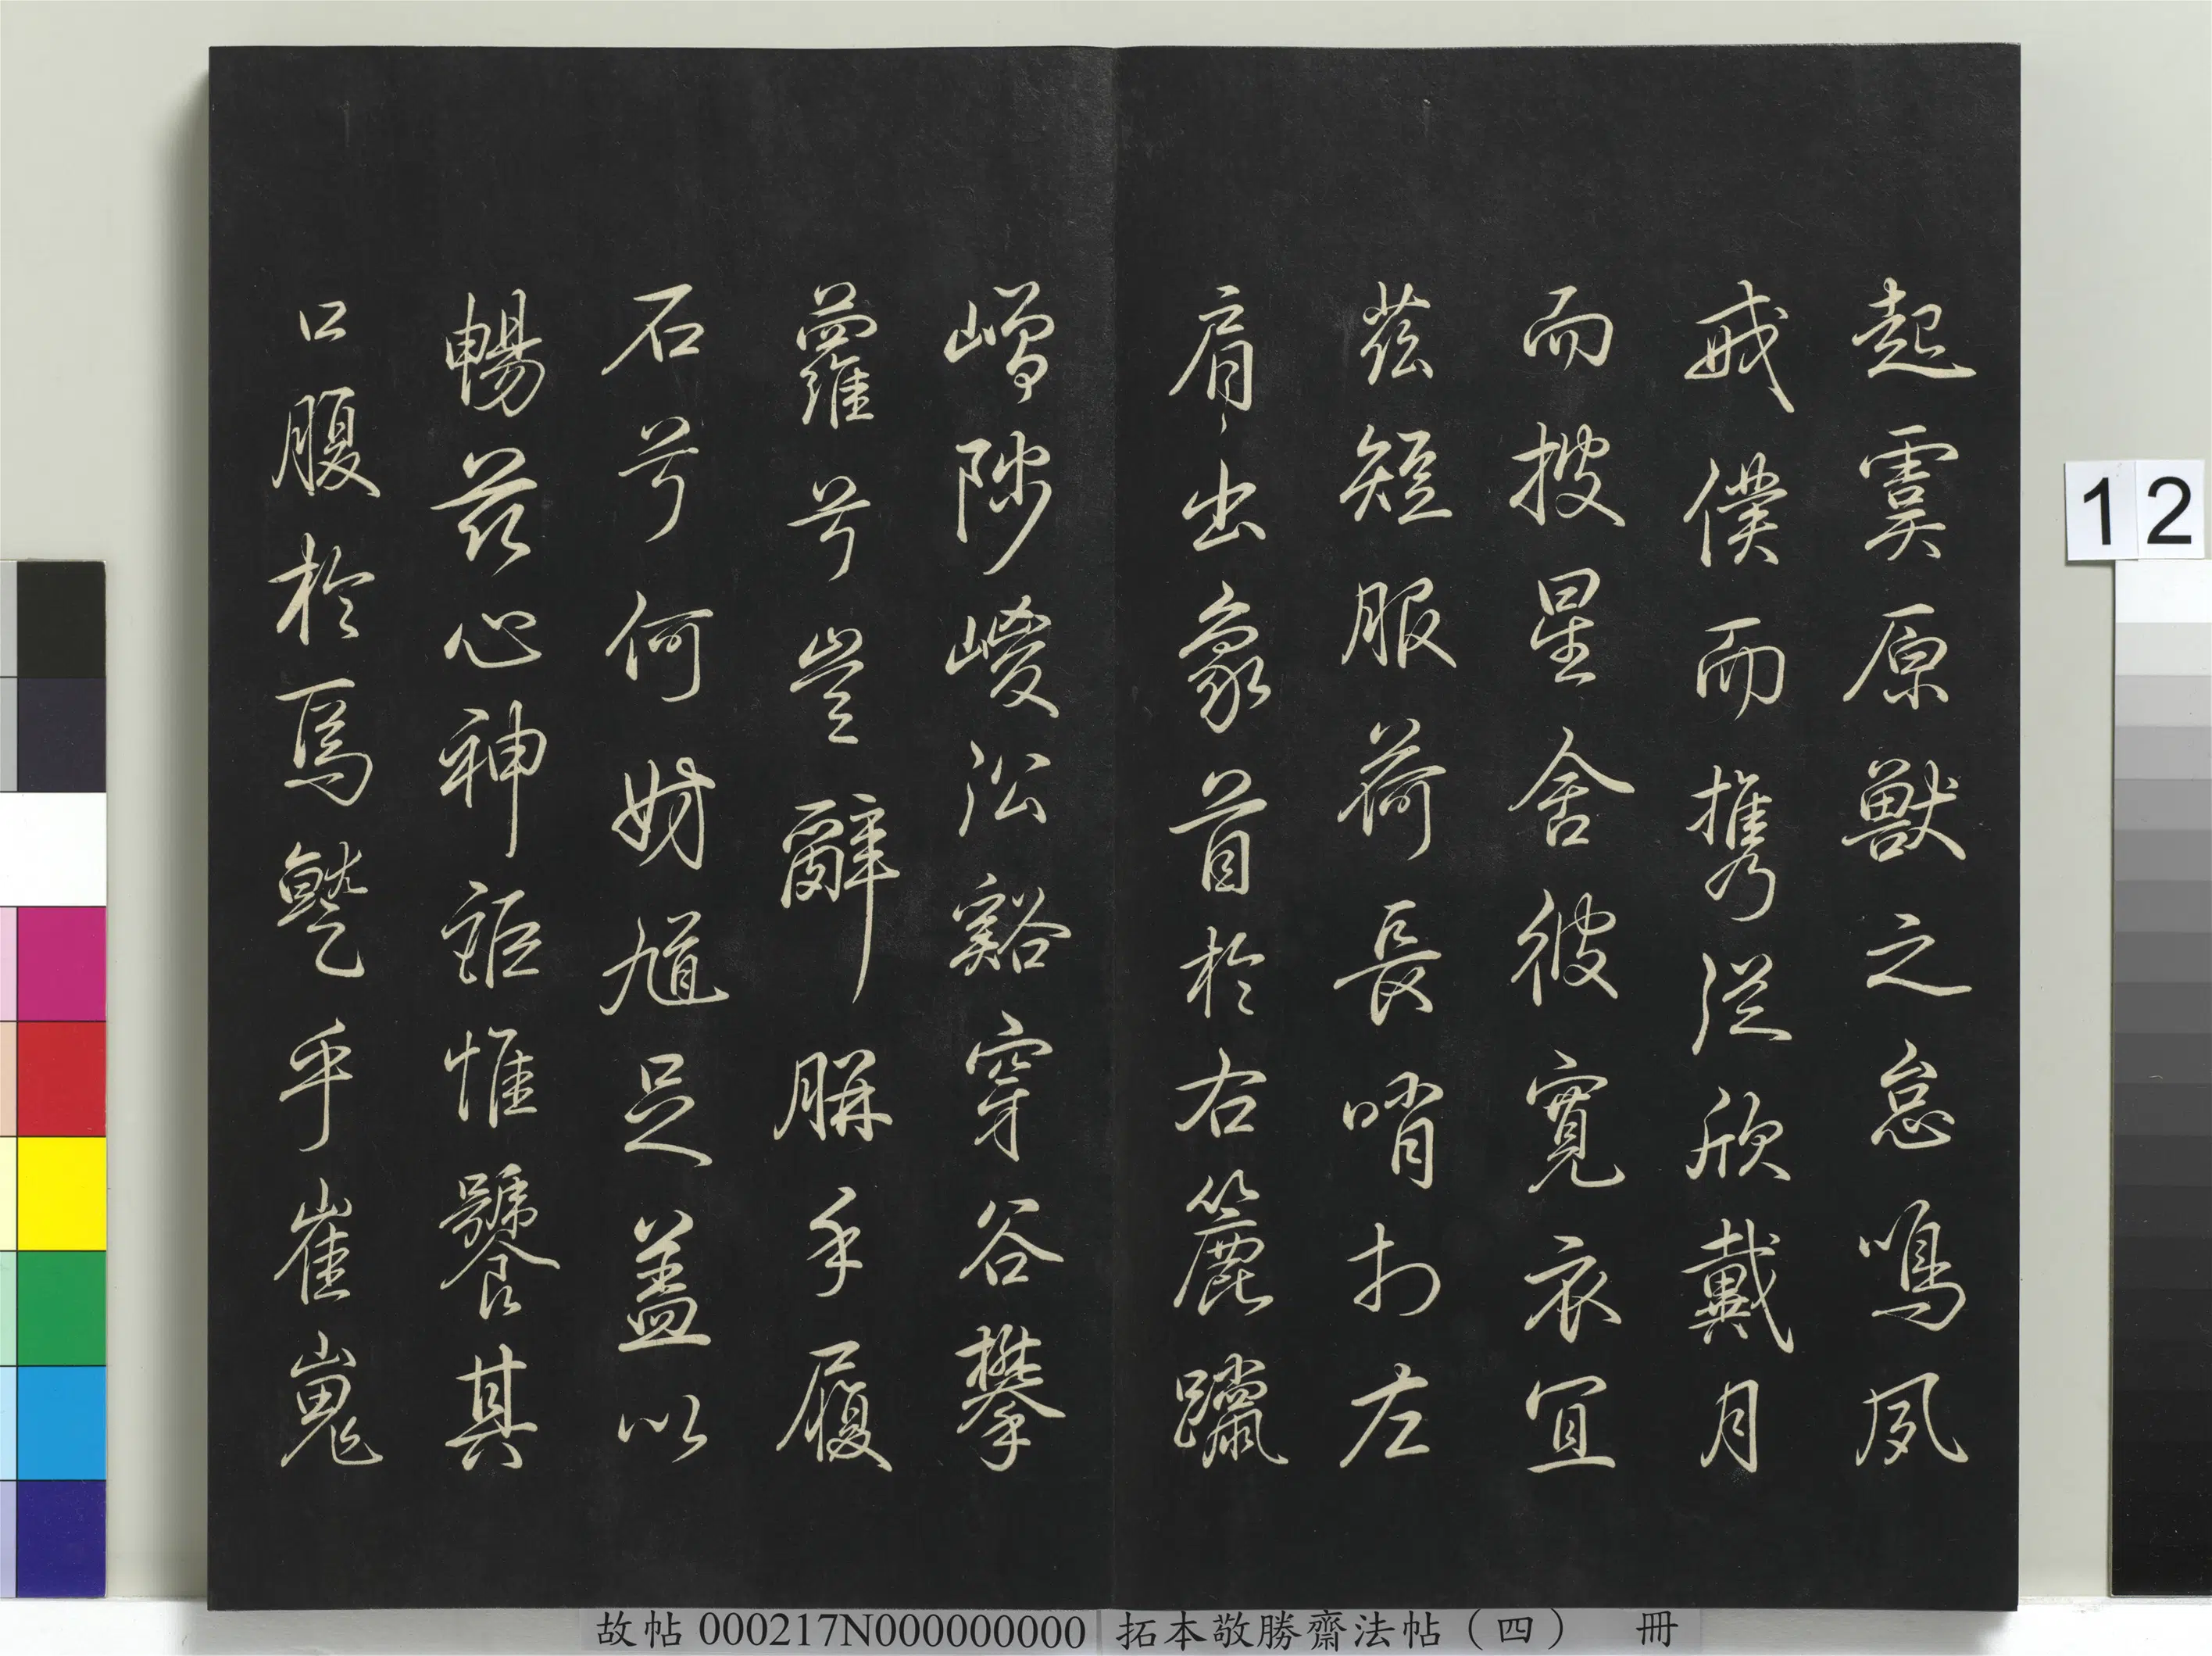 起虞原獸之怠鳴夙
戒僕而携從欣戴月
而披星舍彼寬衣宜
茲短服荷長哨扵左
肩出象首於右麓躡
嶒陟崚沿谿穿谷攀
蘿兮豈辭胼手履
石兮何妨馗足蓋以
暢茲心神詎惟饕其
口腹於焉蹩乎崔嵬
12
故帖000217N000000000 拓本敬勝齋法帖（四） 冊